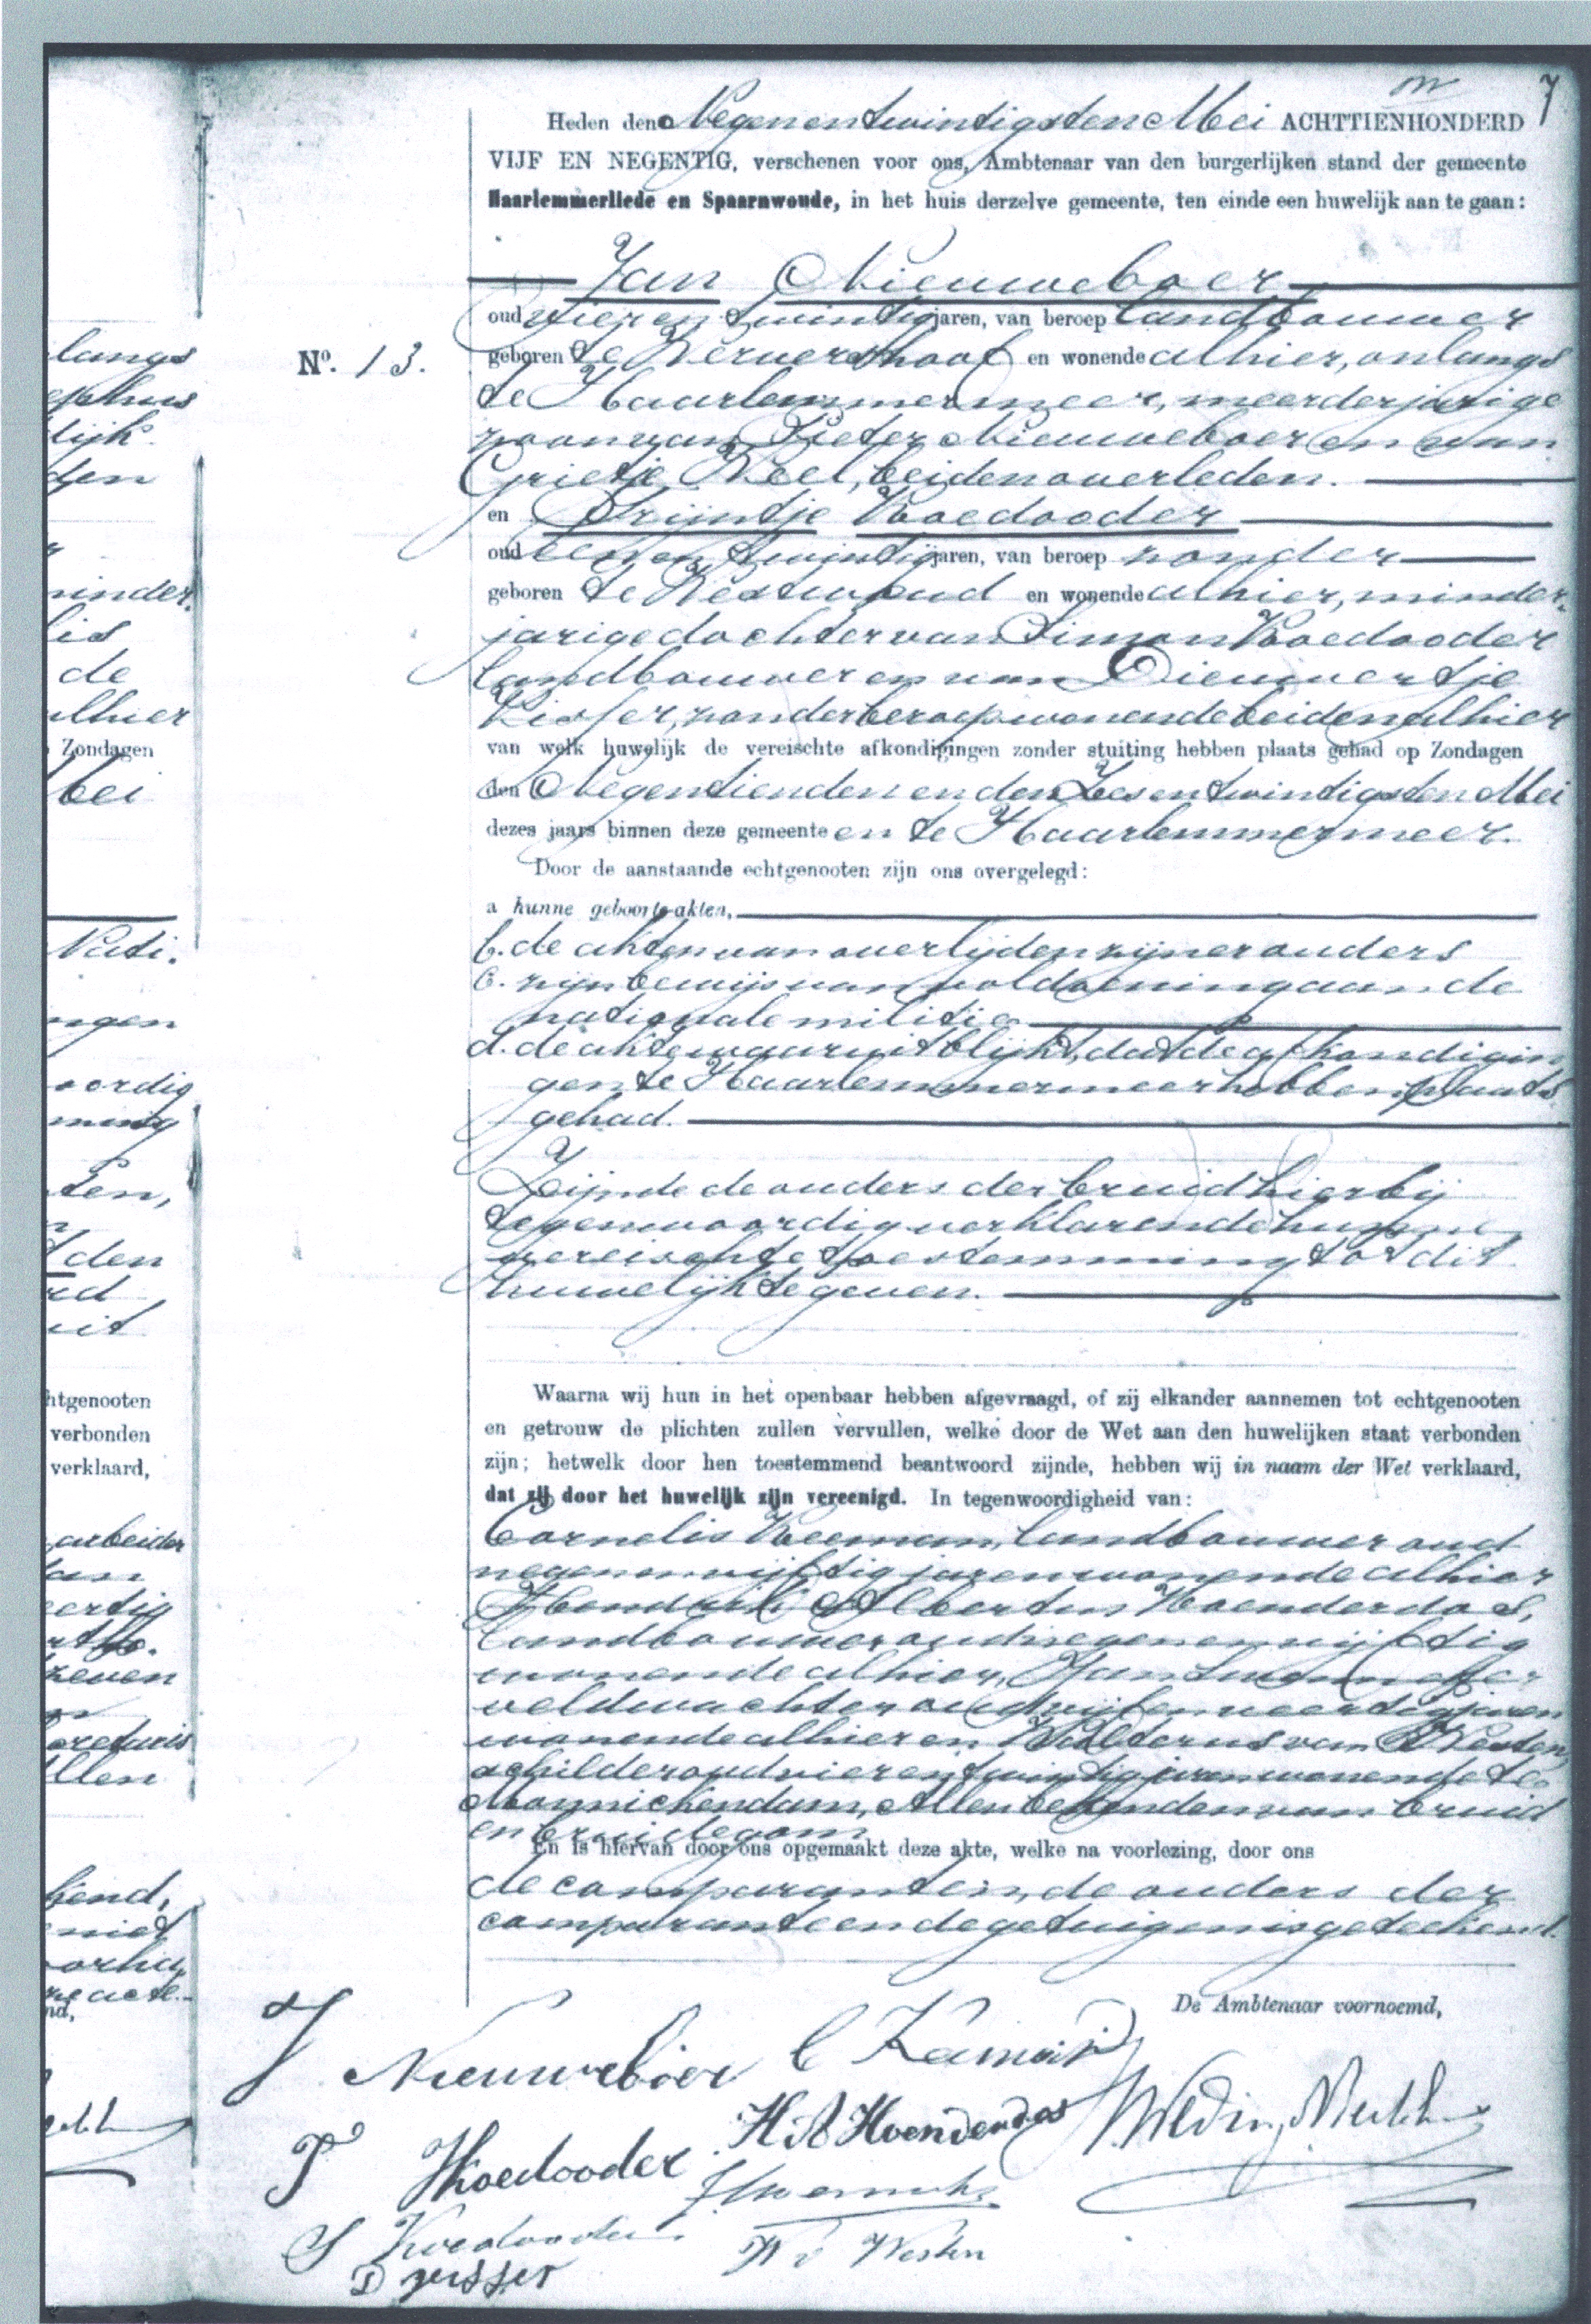 7
Heden den Negenentwintigsten Mei ACHTTIENHONDERD
VIJF EN NEGENTIG, verschenen voor ons, Ambtenaar van den burgerlijken stand der gemeente
Haarlemmerliede en Spaarnwoude, in het huis derzelve gemeente, ten einde een huwelijk aan te gaan:
Jan Nieuweboer
oud vier en twintig jaren, van beroep landbouwer
No. 13.
geboren te Wervershoof en wonende alhier, onlangs
te Haarlemmermeer, meerderjarige
zoon van Pieter Nieuweboer en van
Grietje Neel, beiden overleden.
en Trijntje Koedooder
oud een en twintig jaren, van beroep zonder
geboren te Westwoud en wonende alhier, minder-
jarige dochter van Simon Koedooder
landbouwer en van Dieuwertje
Visser, zonder beroep wonende beiden alhier
van welk huwelijk de vereischte afkondigingen zonder stuiting hebben plaats gehad op Zondagen
den Negentienden en den Zesentwintigsten Mei
dezes jaars binnen deze gemeente en te Haarlemmermeer.
Door de aanstaande echtgenooten zijn ons overgelegd:
a hunne geboorte-akten,
b. de akten van overlijden zijner ouders
c. zijn bewijs van voldoening aan de
nationale militie
d. de akte waaruit blijkt, dat de afkondigin
gen te Haarlemmermeer hebben plaats
gehad.
Zijnde de ouders der bruid hierbij
tegenwoordig verklarende hunne
vereischte toestemming tot dit
huwelijk te geven.
Waarna wij hun in het openbaar hebben afgevraagd, of zij elkander aannemen tot echtgenooten
en getrouw de plichten zullen vervullen, welke door de Wet aan den huwelijken staat verbonden
zijn; hetwelk door hen toestemmend beantwoord zijnde, hebben wij in naam der Wet verklaard,
dat zij door het huwelijk zijn vereenigd. In tegenwoordigheid van:
Cornelis Keeman, landbouwer oud
negenenvijftig jaren wonende alhier
Hendrik Albertus Hoenderdos,
landbouwer oud negenenvijftig
wonende alhier, Jan
veldwachter oud vijfenveertig jaren
wonende alhier en Walterus van Westen,
schilder oud vierentwintig jaren wonende te
Monnickendam, Allen bekenden van bruid
en bruidegom
En is hiervan door ons opgemaakt deze akte, welke na voorlezing, door ons
de comparanten, de ouders der
comparante en de getuigen is geteekend.
De Ambtenaar voornoemd,
J Nieuweboer C Keeman
H A Hoenderdos
T Koedooder
S Koedooder W v Westen
D Visser
langs
lijk
den
minder
lis
de
alhier
Zondagen
Mei
Nati.
ngen
oordig
ming
ten,
den
rd
uit
htgenooten
verbonden
verklaard,
arbeider
zeven
llen
kend,
niet
acte
nd,